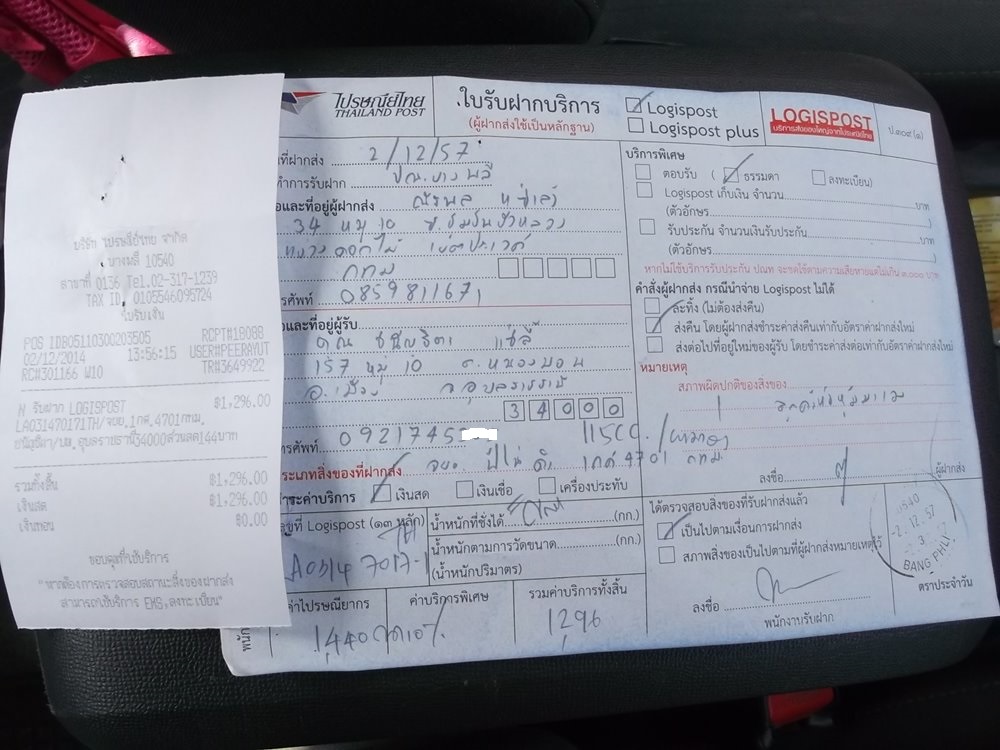 บริษัท ไปรษณีย์ไทย จำกัด
บางพลี 10540
สาขาที่ 0156 Tel.02-317-1239
TAX ID 0105546095724
ใบรับเงิน
POS IDB05110300203505 RCPT#18088
02/12/2014 13:56:15 USER#PEERAYUT
RC#301166 W10 TR#3649922
N รับฝาก LOGISPOST ฿1,296.00
LA031470171TH/จยย.1กศ.4701กทม.
รวมทั้งสิ้น ฿1,296.00
เงินสด ฿1,296.00
เงินทอน ฿0.00
ขอบคุณที่ใช้บริการ
"หากต้องการตรวจสอบสถานะสิ่งของฝากส่ง
สามารถใช้บริการ EMS,ลงทะเบียน"
ไปรษณีย์ไทย
THAILAND POST
ใบรับฝากบริการ
(ผู้ฝากส่งใช้เป็นหลักฐาน)
Logispost
Logispost plus
LOGISPOST
บริการส่งของใหญ่จากไปรษณีย์ไทย
ป.๓๐๙ (๑)
ที่ฝากส่ง 2/12/57
ทำการรับฝาก ปณ.บางพลี
และที่อยู่ผู้ฝากส่ง
34 หมู่ 10
กทม
ศัพท์ 0859811671
และที่อยู่ผู้รับ
คุณ
157 หมู่ 10 ต.หนองบอน
อ.เมือง จ.อุบลราชธานี
34000
ศัพท์ 0921745
115CC.
ประเภทสิ่งของที่ฝากส่ง จยย. 1กศ 4701 กทม.
ชำระค่าบริการ เงินสด เงินเชื่อ เครื่องประทับ
เลขที่ Logispost (๑๓ หลัก)
น้ำหนักที่ชั่งได้ (กก.)
น้ำหนักตามการวัดขนาด (กก.)
(น้ำหนักปริมาตร)
ค่าไปรษณียากร
ค่าบริการพิเศษ
รวมค่าบริการทั้งสิ้น
1,440 ลด10%
1,296
บริการพิเศษ
ตอบรับ ( ธรรมดา ลงทะเบียน)
Logispost เก็บเงิน จำนวน บาท
(ตัวอักษร )
รับประกัน จำนวนเงินรับประกัน บาท
(ตัวอักษร )
หากไม่ใช้บริการรับประกัน ปณท จะชดใช้ตามความเสียหายแต่ไม่เกิน ๓,๐๐๐ บาท
คำสั่งผู้ฝากส่ง กรณีนำจ่าย Logispost ไม่ได้
ละทิ้ง (ไม่ต้องส่งคืน)
ส่งคืน โดยผู้ฝากส่งชำระค่าส่งคืนเท่ากับอัตราค่าฝากส่งใหม่
ส่งต่อไปที่อยู่ใหม่ของผู้รับ โดยชำระค่าส่งต่อเท่ากับอัตราค่าฝากส่งใหม่
หมายเหตุ
สภาพผิดปกติของสิ่งของ
ลงชื่อ ผู้ฝากส่ง
ได้ตรวจสอบสิ่งของที่รับฝากส่งแล้ว
เป็นไปตามเงื่อนการฝากส่ง
สภาพสิ่งของเป็นไปตามที่ผู้ฝากส่งหมายเหตุไว้
ลงชื่อ
พนักงานรับฝาก
10540
-2.12.57
BANG PHLI
ตราประจำวัน